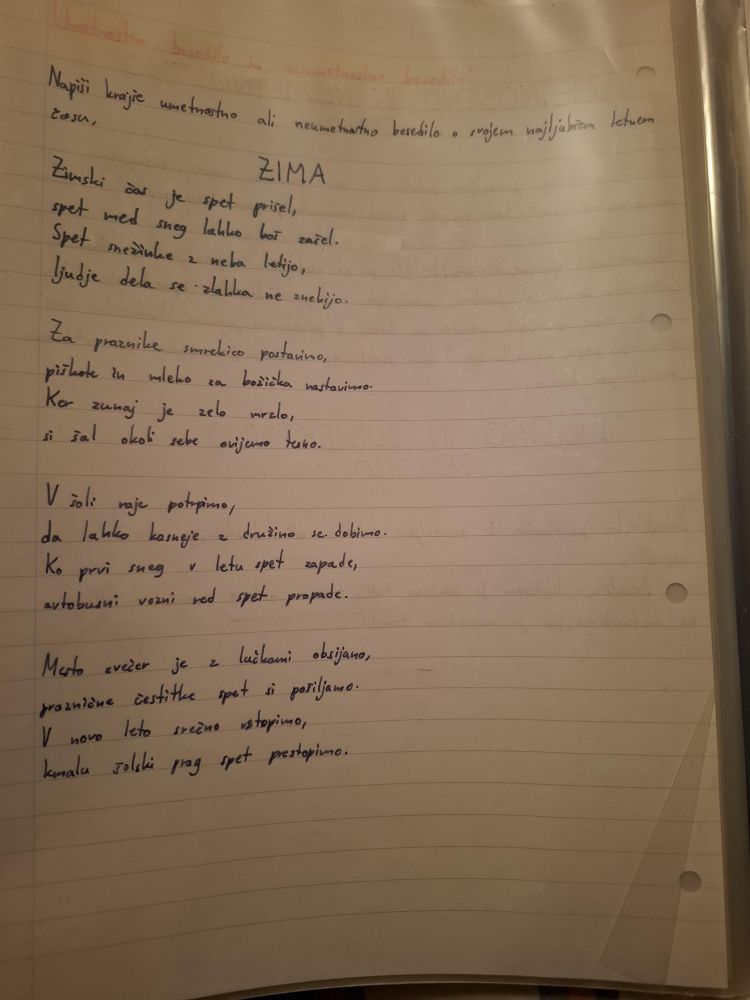 Umetnostno besedilo in neumetnostno besedilo
Napiši krajše umetnostno ali neumetnostno besedilo o svojem najljubšem letnem
času.
ZIMA
Zimski čas je spet prišel,
spet med sneg lahko boš zašel.
Spet snežinke z neba letijo,
ljudje dela se zlahka ne znebijo.
Za praznike smrekico postavimo,
piškote in mleko za božička nastavimo.
Ker zunaj je zelo mrzlo,
si šal okoli sebe ovijemo tesno.
V šoli raje potrpimo,
da lahko kasneje z družino se dobimo.
Ko prvi sneg v letu spet zapade,
avtobusni vozni red spet propade.
Mesto zvečer je z lučkami obsijano,
praznične čestitke spet si pošiljamo.
V novo leto srečno vstopimo,
kmalu šolski prag spet prestopimo.